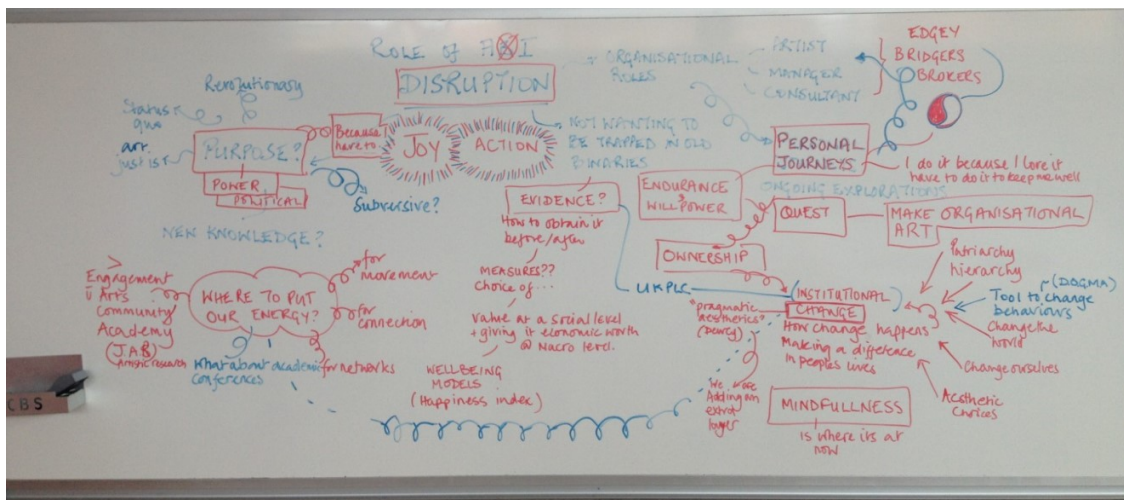 ROLE OF A I
DISRUPTION
ORGANISATIONAL
ROLES
ARTIST
MANAGER
CONSULTANT
EDGEY
BRIDGERS
BROKERS
Revolutionary
Status
quo
art
just is
PURPOSE?
POWER
POLITICAL
Because I
have to
JOY
ACTION
Subversive?
NOT WANTING TO
BE TRAPPED IN OLD
BINARIES
PERSONAL
JOURNEYS
I do it because I love it
have to do it to keep me well
ONGOING EXPLORATIONS
ENDURANCE
WILLPOWER
QUEST
MAKE ORGANISATIONAL
ART
OWNERSHIP
EVIDENCE?
How to obtain it
before/after
MEASURES??
choice of...
Value at a social level
+ giving it economic worth
@ Macro level.
WELLBEING
MODELS
(Happiness index)
NEW KNOWLEDGE?
Engagement
Arts
Community
Academy
(JAB)
Artistic research
WHERE TO PUT
OUR ENERGY?
for
movement
for
connection
for networks
What about academic
conferences
UKPLC
(INSTITUTIONAL)
CHANGE
How change happens
Making a difference
in peoples lives
"pragmatic
aesthetics"
(Dewey)
We are
Adding an
extra
layer
Patriarchy
hierarchy
(DOGMA)
Tool to change
behaviours
Change the
world
Change ourselves
Aesthetic
choices
MINDFULLNESS
is where its at
now
CBS